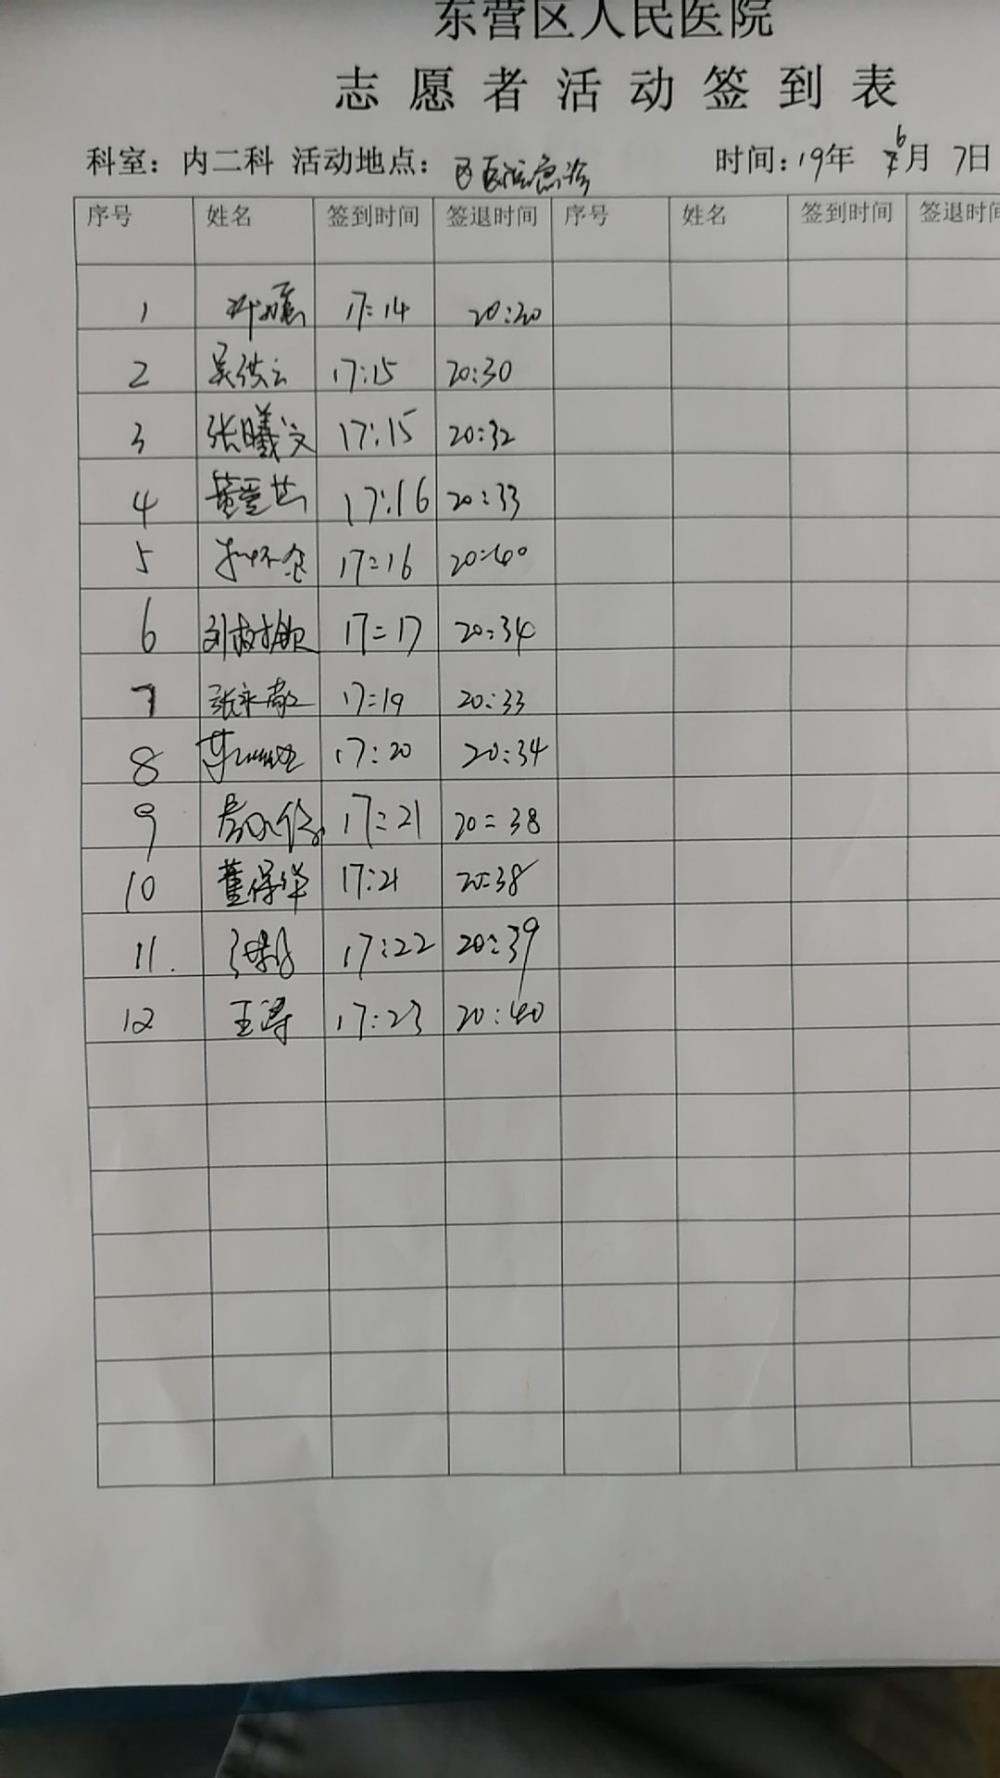 东营区人民医院
志愿者活动签到表
科室：内二科 活动地点：区医院急诊 时间：19年 6月 7日
序号 姓名 签到时间 签退时间 序号 姓名 签到时间 签退时间
1 17:14 20:30
2 吴洪云 17:15 20:30
3 张曦文 17:15 20:32
4 董爱芸 17:16 20:33
5 17:16 20:40
6 刘树钦 17:17 20:34
7 张永敬 17:19 20:33
8 17:20 20:34
9 17:21 20:38
10 董保华 17:21 20:38
11. 17:22 20:39
12 王涛 17:23 20:40